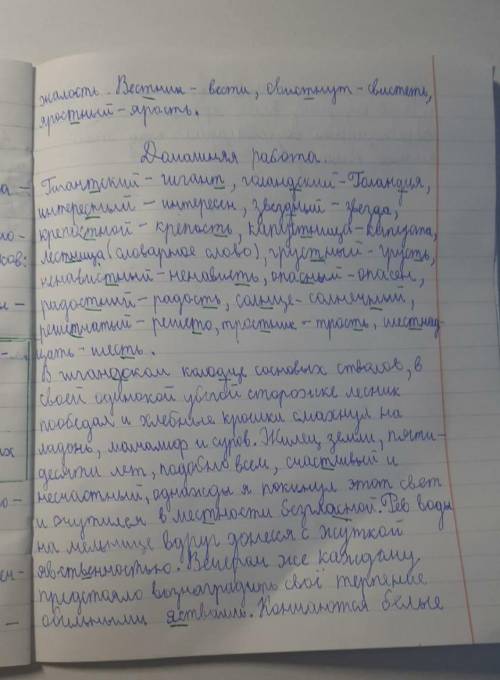 жалость. Вестник - вести, свистнут - свистеть,
яростный - ярость.
Домашняя работа.
Гигантский - гигант, голандский - Голандия,
интересный - интересен, звездный - звезда,
крепостной - крепость, капустница - капуста,
лестница (словарное слово), грустный - грусть,
ненавистный - ненависть, опасный - опасен,
радостный - радость, солнце - солнечный,
решетчатый - решето, тростник - трость, шестнад-
цать - шесть.
В гигандском колодце сосновых стволов, в
своей одинокой убогой сторожке лесник
пообедал и хлебные крошки смахнул на
ладонь, молчалив и суров. Жилец земли, пяти-
десяти лет, подобно всем, счастливый и
несчастный, однажды я покинул этот свет
и очутился в местности безгласной. Рёв воды
на мельнице вдруг донёсся с жуткой
явственностью. Вечером же каждому
предстояло вознаградить своё терпение
обильными яствами. Кончаются белые